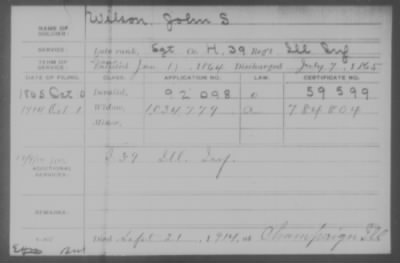 NAME OF SOLDIER: Wilson, John S
SERVICE: Late rank, Sgt Co. H, 39 Reg't Ill Inf
TERM OF SERVICE: Enlisted Jan 1, 1864 Discharged July 7, 1865
DATE OF FILING. CLASS. APPLICATION NO. LAW. CERTIFICATE NO.
1865 Oct Invalid, 92098 59599
1914 Oct 1 Widow, 1034779 784804
Minor,
ADDITIONAL SERVICES: 39 Ill. Inf
REMARKS:
Died Sept 21, 1914, at Champaign Ill